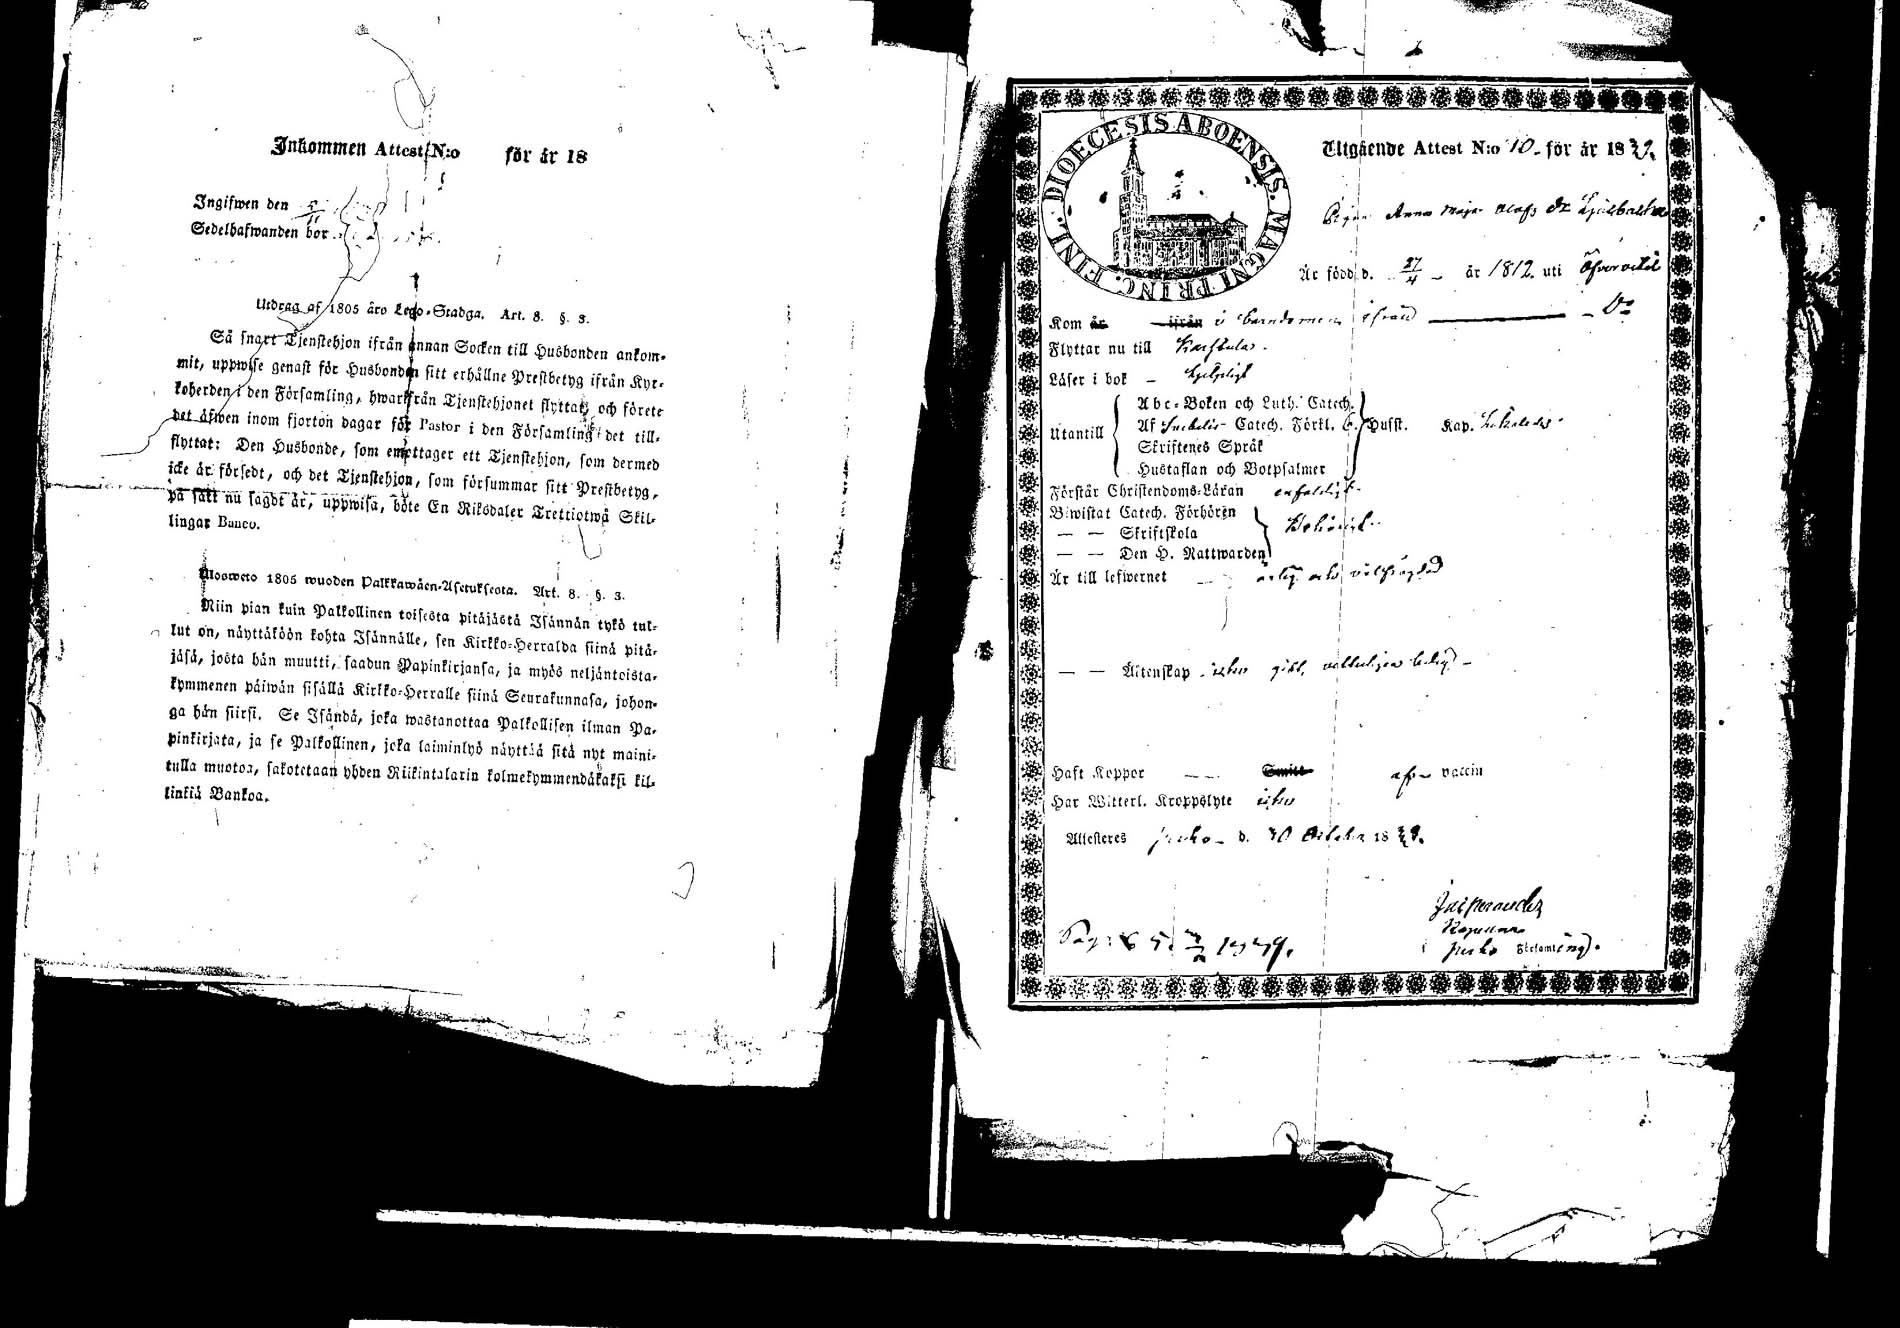 Inkommen Attest N:o för år 18
Ingifwen den
Sedelhafwanden bor
Utdrag af 1805 års Lego-Stadga. Art. 8. §. 3.
Så snart Tjenstehjon ifrån annan Socken till Husbonden ankom-
mit, uppwise genast för Husbonden sitt erhållne Prestbetyg ifrån Kyr-
koherden i den Församling, hwarifrån Tjenstehjonet flyttat, och förete
det äfwen inom fjorton dagar för Pastor i den Församling det till-
flyttat: Den Husbonde, som emottager ett Tjenstehjon, som dermed
icke är försedt, och det Tjenstehjon, som försummar sitt Prestbetyg,
på sätt nu sagdt är, uppwisa, böte En Riksdaler Trettiotwå Skil-
lingar Banco.
Ulosweto 1805 wuoden Palkkawäen-Asetuksesta. Art. 8. §. 3.
Niin pian kuin Palkollinen toisesta pitäjästä Isännän tykö tul-
lut on, näyttäköön kohta Isännälle, sen Kirkko-Herralda siinä pitä-
jäsä, josta hän muutti, saadun Papinkirjansa, ja myös neljäntoista-
kymmenen päiwän sisällä Kirkko-Herralle siinä Seurakunnasa, johon-
ga hän siirsi. Se Isändä, joka wastanottaa Palkollisen ilman Pa-
pinkirjata, ja se Palkollinen, joka laiminlyö näyttää sitä nyt maini-
tulla muotoa, sakotetaan yhden Riikintalarin kolmekymmendäkaksi kil-
linkiä Bankoa.
DIOECESIS ABOENSIS. MAGNI PRINC. FINL.
Utgående Attest N:o 10 för år 1839.
Pigan Anna Maja Olofs Dr
Är född d. 27/4 år 1812. uti
Kom år ifrån i barndomen ifrån Do
Flyttar nu till Karstula
Läser i bok
Abc-Boken och Luth. Catech.
Utantill Af Catech. Förkl. Husst. Kap.
Skriftenes Språk
Hustaflan och Botpsalmer
Förstår Christendoms-Läran enfaldigt
Biwistat Catech. Förhören
— — Skriftskola
— — Den H. Nattwarden
Är till lefwernet ärlig och
— — Äktenskap icke gift,
Haft Koppor Smitt af vaccin
Har Witterl. Kroppslyte icke
Attesteres d. 30 October 1839.
Församling.